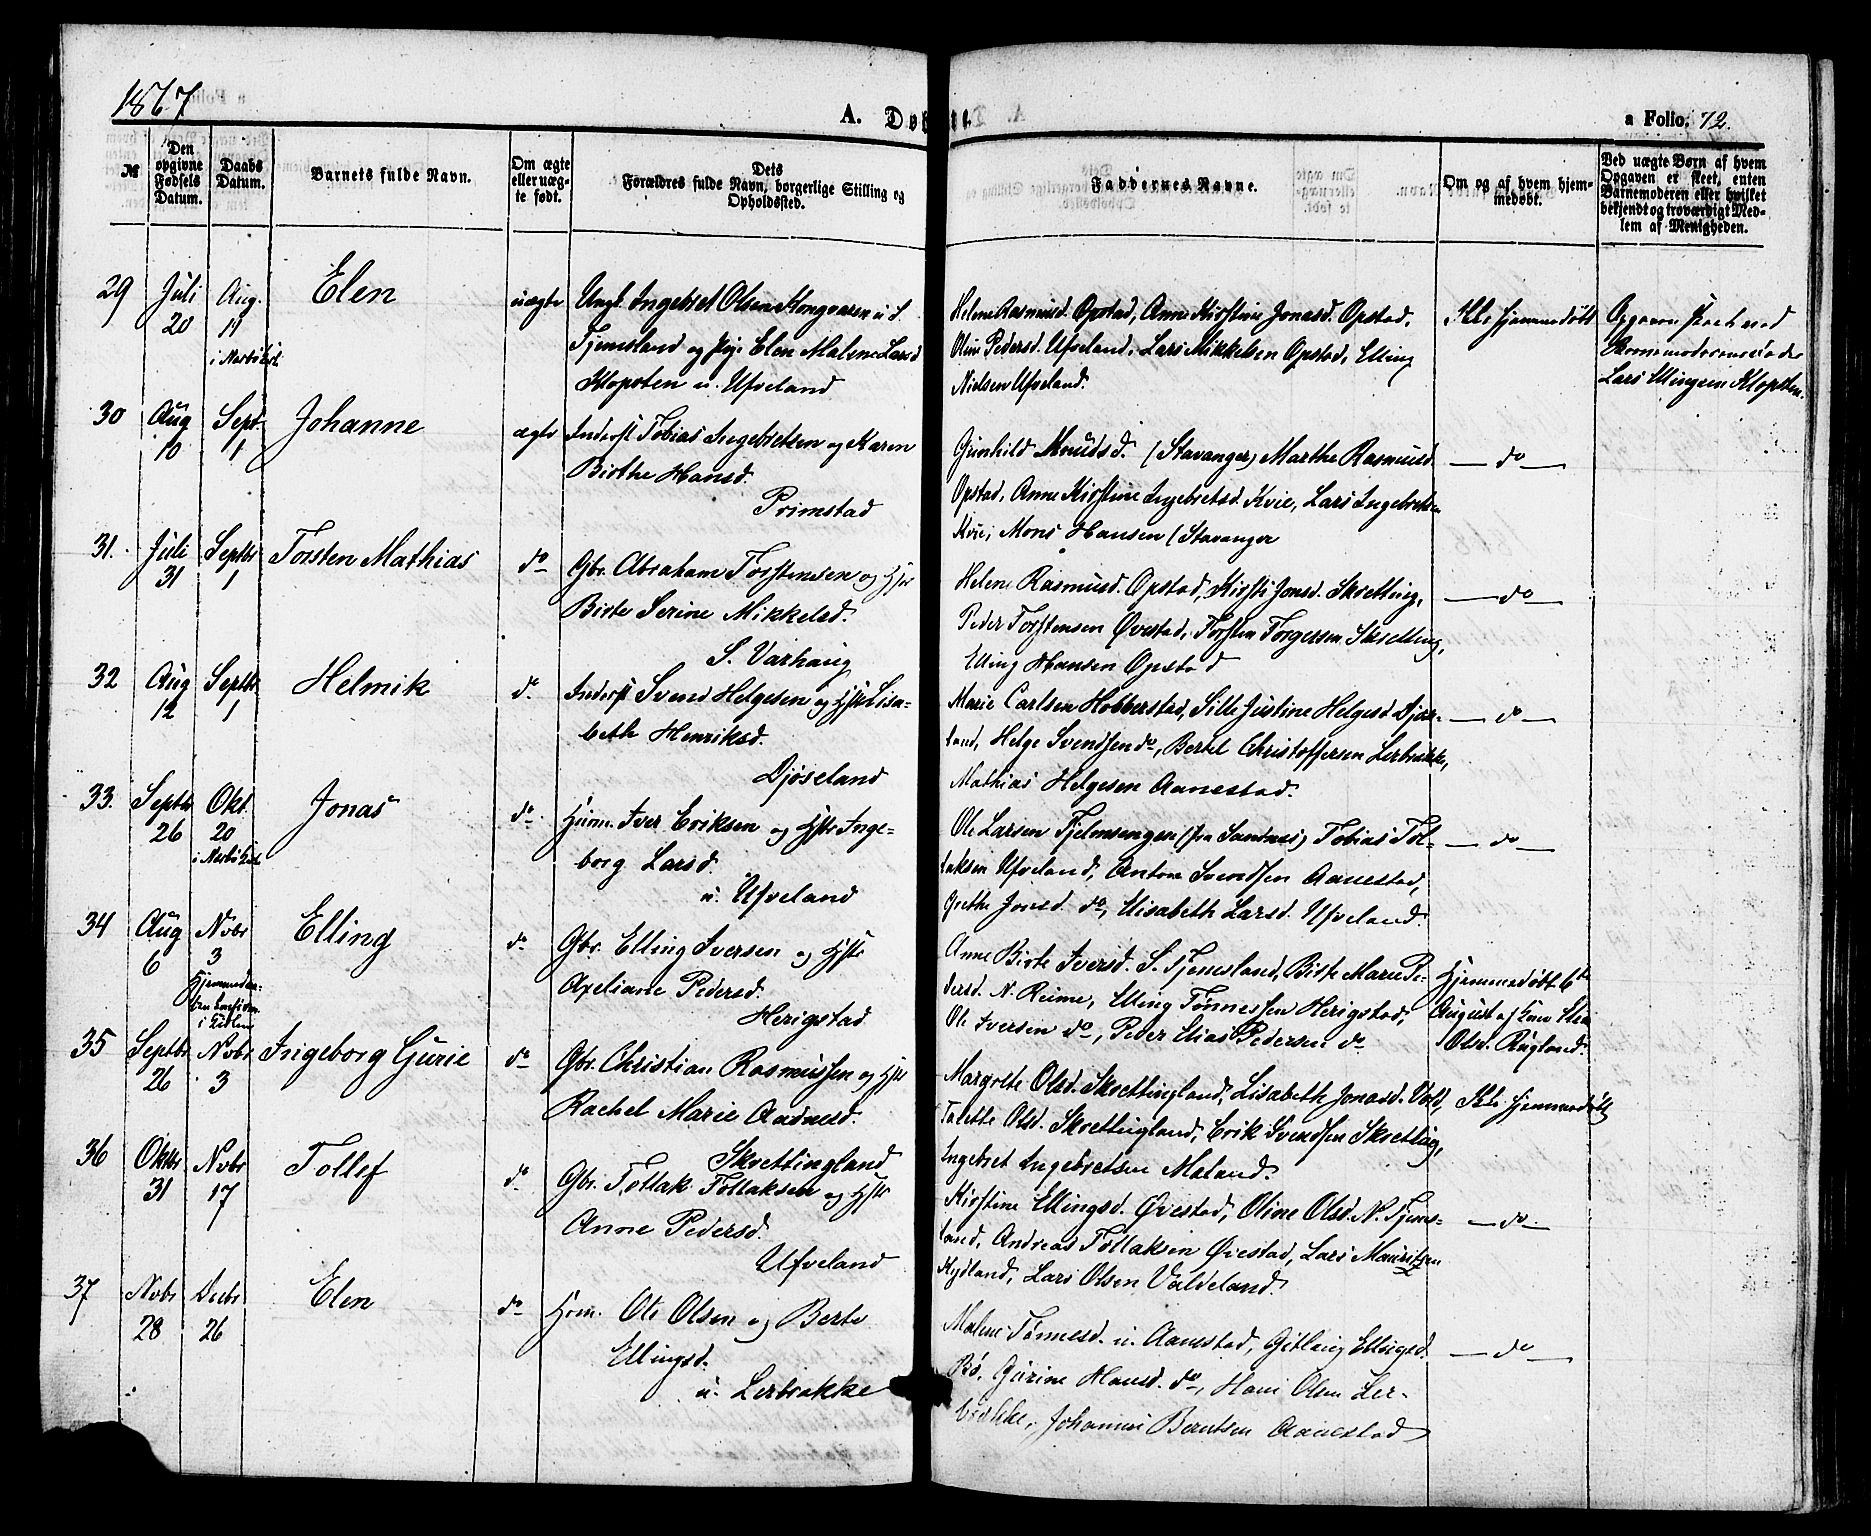 1867
A. Døbte.
a Folio. 72.
№
Den opgivne Fødsels Datum.
Daabs Datum.
Barnets fulde Navn.
Om ægte eller uægte født.
Dets Forældres fulde Navn, borgerlige Stilling og Opholdssted.
Faddernes Navne.
Om og af hvem hjemmedøbt.
Ved uægte Børn af hvem Opgaven er skeet, enten Barnemoderen eller hvilket bekjendt og troværdigt Medlem af Menigheden.
29 Juli 20 Aug. 11 Elen uægte
Ungk. Ingebret Olsen u. S.
Tjemsland og Pige Elen Malene Larsd
Klopsten u. Ufveland
Helene Rasmusd. Opstad, Anne Kirstine Jonasd. Opstad,
Oline Pedersd. Ufveland, Lars Mikkelsen Opstad, Elling
Nielsen Ufveland.
Ikke hjemmedøbt
Lars Klopsten
30 Aug 10 Sept 1 Johanne ægte
Inderst Tobias Ingebretsen og Karen
Birthe Hansd.
Primstad
Gunhild Knudsd. (Stavanger) Marthe Rasmusd.
Opstad, Anne Kirstine Ingebretsd Kvie, Lars Ingebretsen
Kvie, Mons Hansen (Stavanger
— do —
31. Juli 31 Septbr 1 Torsten Mathias do
Gbr. Abraham Torstensen og Hstr
Birte Serine Mikkelsd.
S. Varhaug
Helene Rasmusd. Opstad, Kirsti Jonsd. Skretting,
Peder Torstensen Øvestad, Torsten Torgersen Skretting,
Elling Hansen Opstad
— do —
32 Aug 12 Septbr 1 Helmik do
Inderst Svend Helgesen og Hstr Lisa-
beth Henriksd.
Djøseland
Marie Carlsen Hobberstad, Sille Justine Helgesd Djøse-
land, Helge Svendsen do, Bertel Christoffersen Lerbrække,
Mathias Helgesen Aanestad.
— do —
33. Septbr 26 Okt. 20 Jonas do
Huusm. Iver Eriksen og Hstr Inge-
borg Larsd.
u. Ufveland
Ole Larsen (fra Sandnes) Tobias Tol-
laksen Ufveland, Anton Svendsen Aanestad,
Grethe Jonsd. do, Elisabeth Larsd. Ufveland.
— do —
34 Aug 6 Novbr 3 Elling do
Gbr. Elling Iversen og Hstr
Axeliane Pedersd.
Herigstad
Anne Birte Iversd. S. Tjemsland, Birte Marie Pe-
dersd. N. Reime, Elling Tønnessen Herigstad,
Ole Iversen do, Peder Elias Pedersen do
Hjemmedøbt 6te
August af
Olsd. Rugland.
35 Septbr 26 Novbr 3 Ingeborg Gurie do
Gbr. Christian Rasmussen og Hstr
Rachel Marie Aadnesd.
Skrettingland
Margrete Olsd. Skrettingland, Lisabeth Jonasd. Voll,
Talette Olsd. Skrettingland, Erik Svendsen Skretting,
Ingebret Ingebretsen Maland.
Ikke hjemmedøbt
36 Oktbr 31 Novbr 17 Tollef do
Gbr. Tollak Tollaksen og Hstr
Anne Pedersd.
Ufveland
Kirstine Ellingsd. Øvestad, Oline Olsd. N. Tjems-
land, Andreas Tollaksen Øvestad, Lars Mauritzen
Hydland, Lars Olsen Valdeland.
— do —
37 Novbr 28 Decbr 26 Elen do
Huusm. Ole Olsen og Berte
Ellingsd.
u. Lerbrække
Malene Tønnesd. u. Aanestad, Gitlaug Ellingsd.
Bø, Gurine Hansd. do, Hans Olsen Ler-
brække, Johannes Berntsen Aanestad
— do —